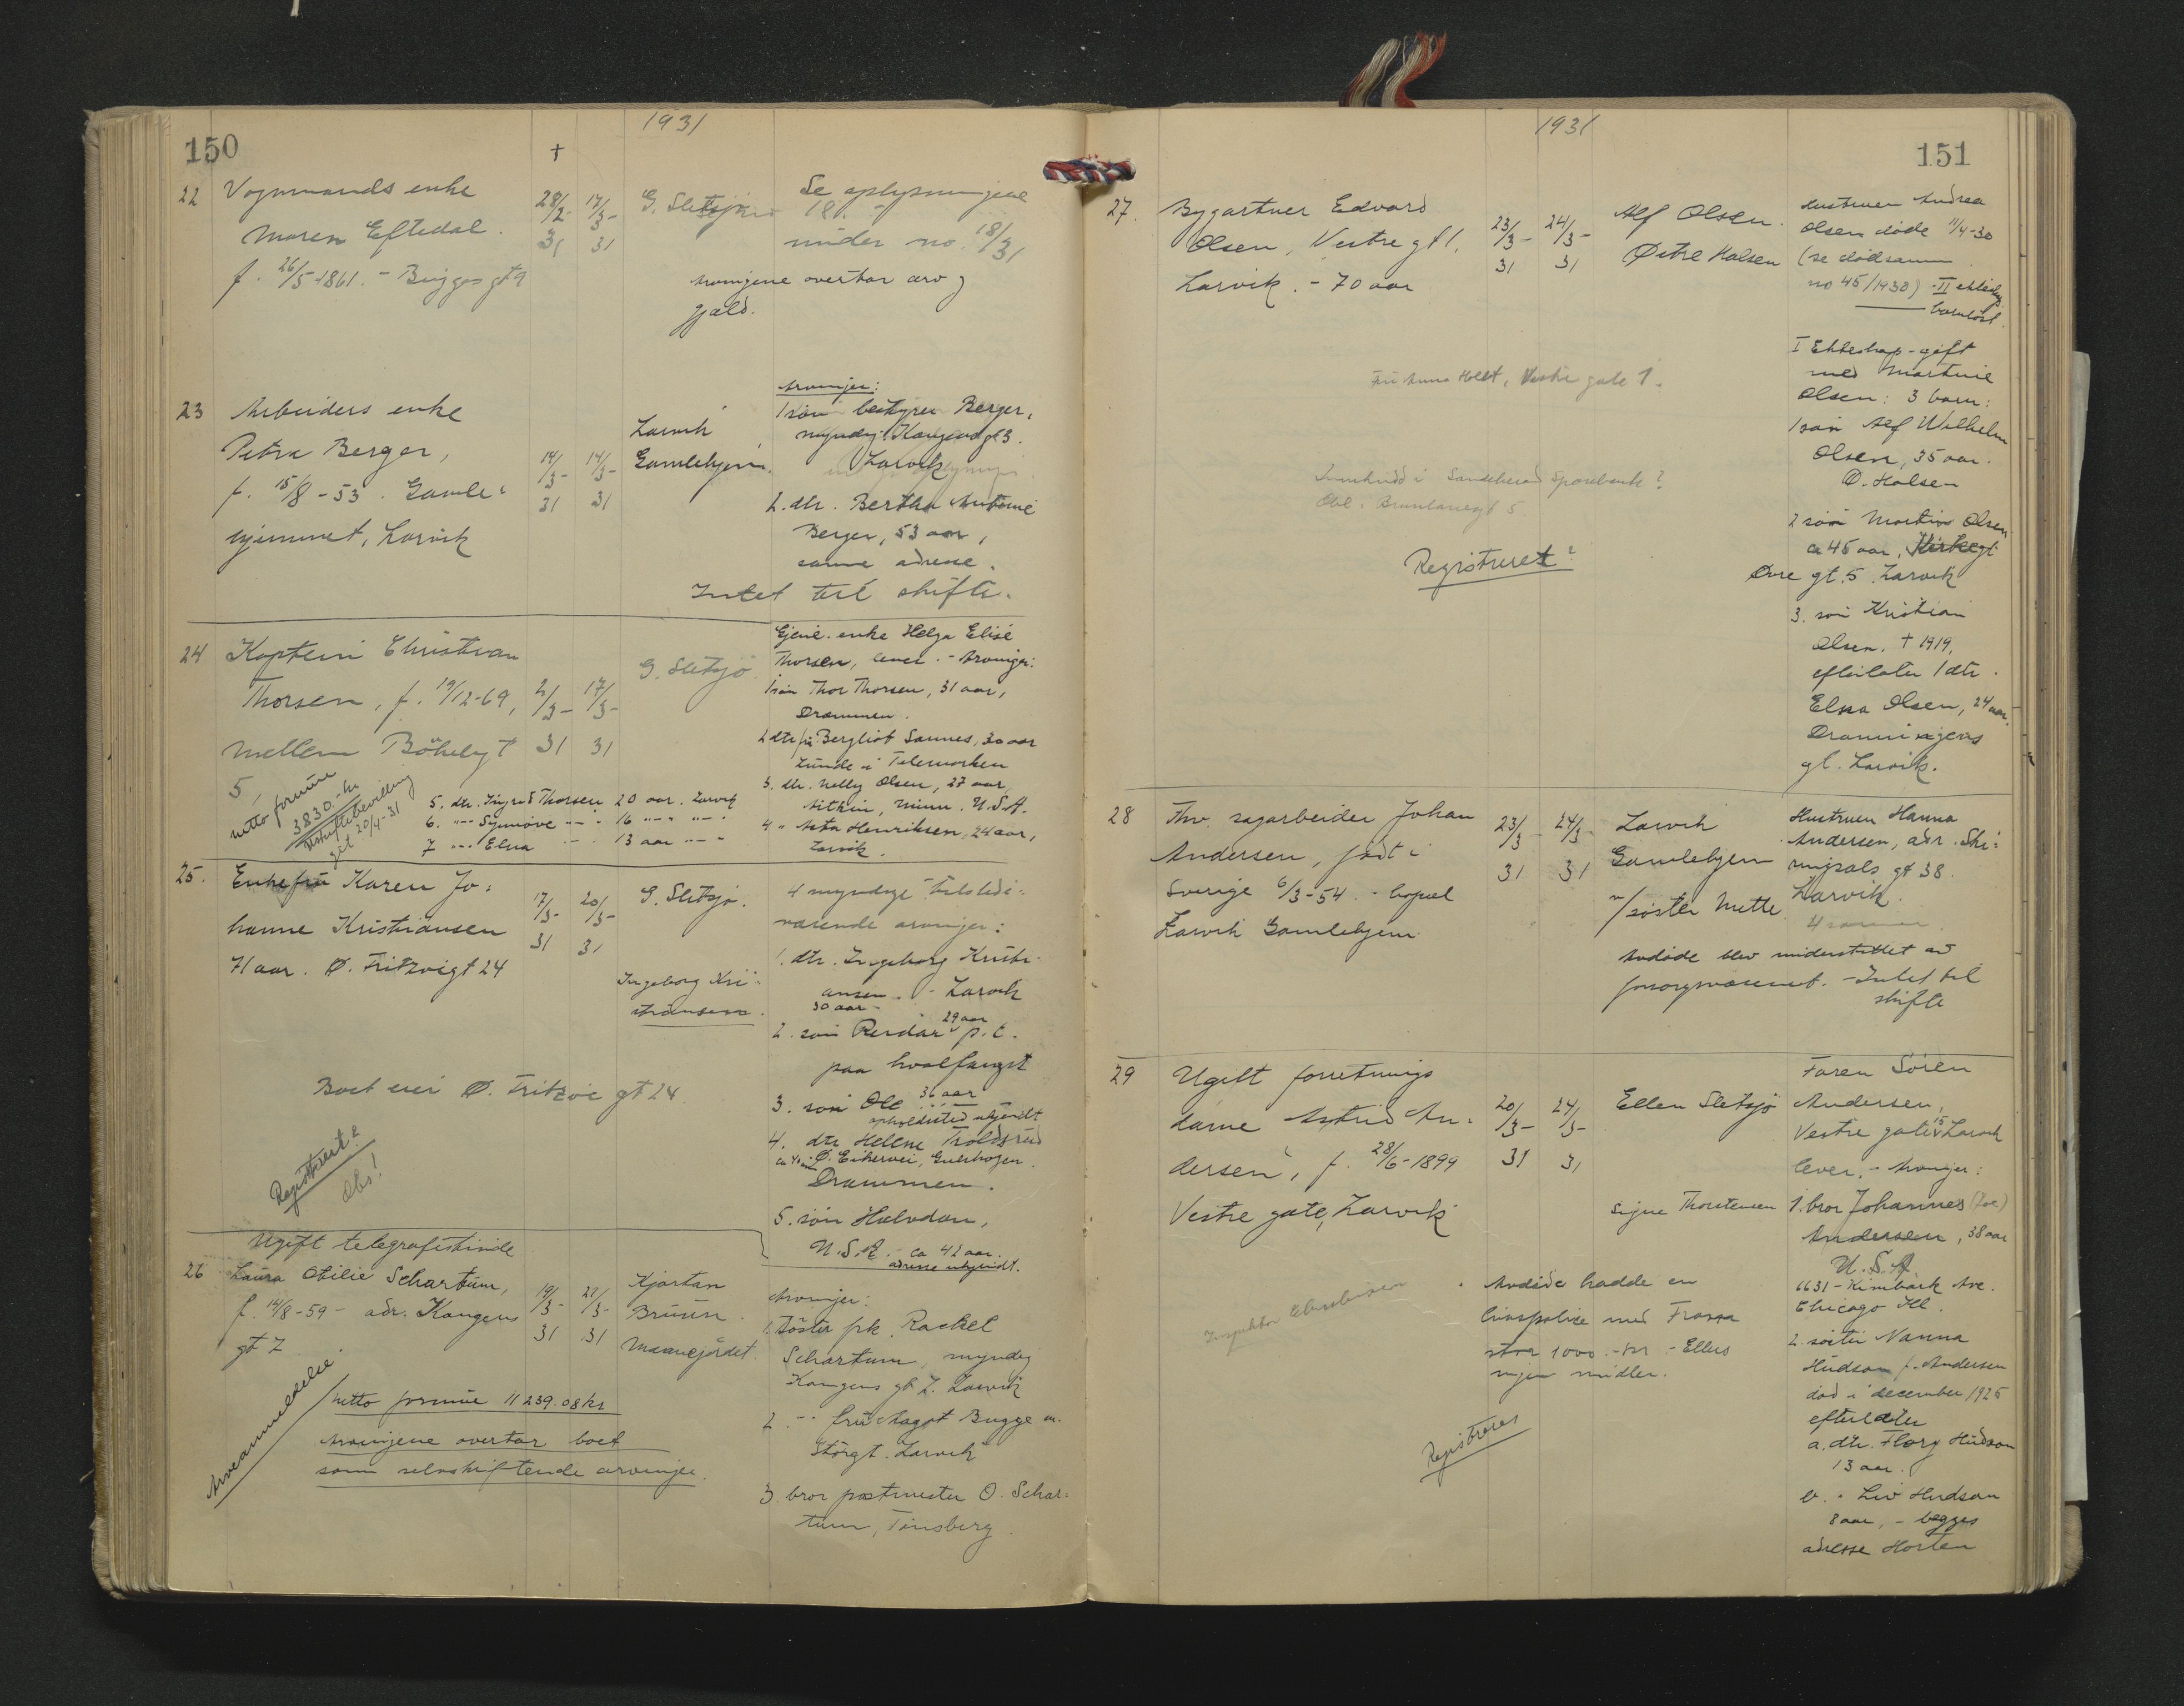 150
1931
†
22 Vognmands enke
Maren Eftedal.
f. 26/5-1861. - Bugges gt 9
28/2-31
17/3-31
G. Sletsjø
Se oplysningene
under no. 18/31
Arvingene overtar arv og
gjæld.
23 Arbeiders enke
Petra Berger,
f. 15/8-53. Gamle-
hjemmet, Larvik
14/3-31
14/3-31
Larvik
Gamlehjem.
Arvinger:
1 søn bestyrer Berger,
myndig. Kongensgt 3.
Larvik
2. dtr. Bertha Antonie
Berger, 53 aar,
samme adresse.
Intet til skifte.
24 Kaptein Christian
Thorsen, f. 19/12-69,
Mellem Bökeligt
5,
2/3-31
17/3-31
G. Sletsjö
netto formue
3830.- kr
Uskiftebevilling
git 20/4-31
Gjenl. enke Helga Elise
Thorsen, lever. - Arvinger:
1 søn Thor Thorsen, 31 aar,
Drammen.
2 dtr fru Bergliot Sannes, 30 aar
Lunde i Telemarken
3. dtr. Nelly Olsen, 27 aar,
Aitkin, Minn. U.S.A.
4 " Asta Henriksen, 24 aar,
Larvik.
5. dtr. Ingrid Thorsen 20 aar. Larvik
6. "- Synnöve -"- 16 "- " -"-
7 "- Elna -"- 13 aar "- "
25. Enkefru Karen Jo-
hanne Kristiansen
71 aar. Ø. Fritzøigt 24
17/3-31
20/3-31
G. Sletsjø.
Ingeborg Kri-
stiansen.
4 myndige tilstede-
værende arvinger:
1. dtr. Ingeborg Kristi-
ansen. - Larvik
30 aar -
2. søn Reidar 29 aar p.t.
paa hvalfangst
3. søn Ole 36 aar
opholdsted ukjendt
4. dtr Helene Troldsrud
ca 40 aar Ø. Eikervei, Gulskogen.
Drammen.
5. søn Halvdan,
U.S.A. - ca 42 aar.
adresse ukjendt.
Boet eier Ø. Fritzøe gt 24
Registrert?
Obs!
Ugift telegrafistinde
26 Laura Otilie Schartum,
f. 14/8-59 - adr. Kongens
gt 7
19/3-31
21/3-31
Kjartan
Bruun.
Maanejordet
Arveanmeldelse
Netto formue 11 239.08 kr
Arvingene overtar boet
som selvskiftende arvinger.
Arvinger:
1. Söster frk. Rachel
Schartum, myndig
Kongens gt 7. Larvik
2. "- fru Aagot Bugge m.
Storgt. Larvik
3. bror postmester O. Schar-
tum, Tønsberg.
1931
151
27. Bygartner Edvard
Olsen, Vestre gt 1.
Larvik. - 70 aar
23/3-31
24/3-31
Alf Olsen.
Østre Halsen
Hustruen Andrea
Olsen döde 11/4-30
(se dödsanm
no 45/1930) - II ekteskap
barnløst.
Fru Anna Holt, Vestre gate 1.
I Ekteskap - gift
med Martine
Olsen: 3 barn:
1 søn Alf Wilhelm
Olsen, 35 aar.
Ø. Halsen
2 søn Martin Olsen
ca 45 aar, Kirkegt
Øvre gt. 5. Larvik
3. søn Kristian
Olsen. † 1919,
efterlater 1 dtr.
Elna Olsen, 24 aar.
Dronningens
gt. Larvik.
Innskudd i Sandeherred Sparebank?
Obl. i Brunlanesgt 5.
Registreret?
28 Fhv. sagarbeider Johan
Andersen, født i
Sverige 6/3-54. - bopæl
Larvik Gamlehjem
23/3-31
24/3-31
Larvik
Gamlehjem
v/ søster Mette.
Hustruen Hanna
Andersen, adr. Ski-
ringsals gt 38.
Larvik.
Avdöde blev understöttet av
forsorgsvæsenet. - Intet til
skifte
29 Ugift forretnings
dame Astrid An-
dersen, f. 28/6-1899
Vestre gate, Larvik
20/3-31
24/3-31
Ellen Sletsjø
Signe Thorstensen
Faren Sören
Andersen,
Vestre gate 15 Larvik
lever. - Arvinger:
1. bror Johannes (Joe)
Andersen, 38 aar
U.S.A
6631 - Kimbark Ave.
Chicago Ill.
2. söster Nanna
Hudson f. Andersen
död i december 1925
efterlater
a. dtr. Flory Hudson
13 aar.
b. " Liv Hudson
8 aar, - begges
adresse Horten
Avdöde hadde en
livspolise med Fram
stor 1000.- kr - Ellers
ingen midler.
Inspektør
Registreres